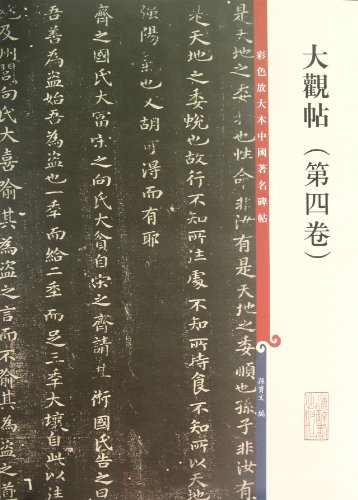 大觀帖（第四卷）
彩色放大本中國著名碑帖
孫寶文 編
是天地之委和也性命非汝有是天地之委順也孫子非汝有
是天地之委蛻也故行不知所往處不知所持食不知所以天地
強陽氣也又胡可得而有耶
齊之國氏大富宋之向氏大貧自宋之齊請其術國氏告之曰
吾善為盜始吾為盜也一年而給二年而足三年大壤自此以
及州閭向氏大喜喻其為盜之言而不喻其為